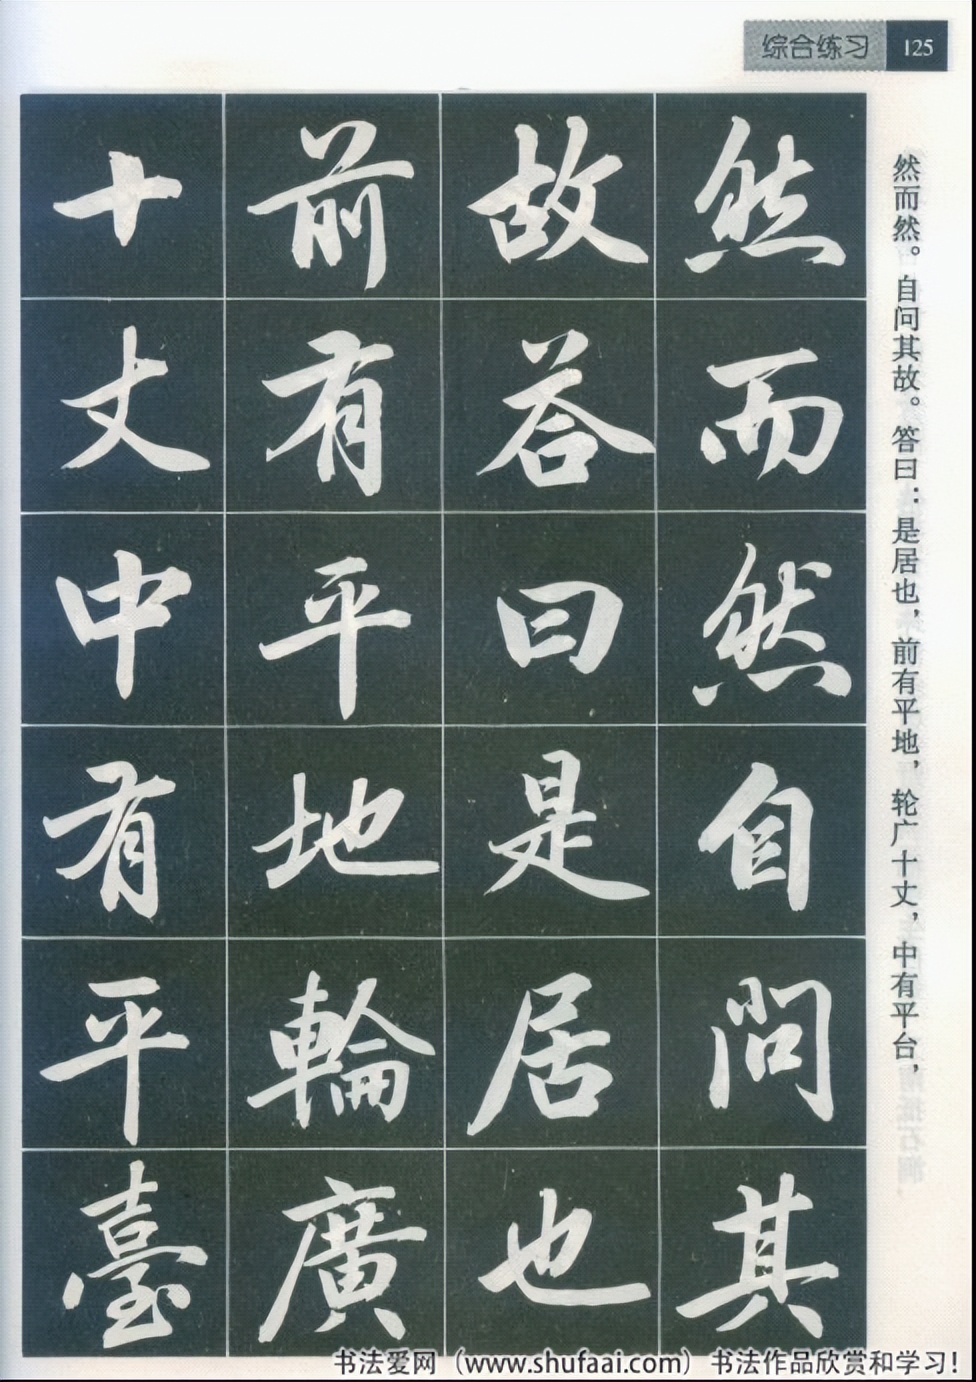 综合练习 125
然而然。自问其故。答曰：是居也，前有平地，轮广十丈，中有平台，
然而然自問其
故荅曰是居也
前有平地輪廣
十丈中有平臺
书法爱网（www.shufaai.com）书法作品欣赏和学习！